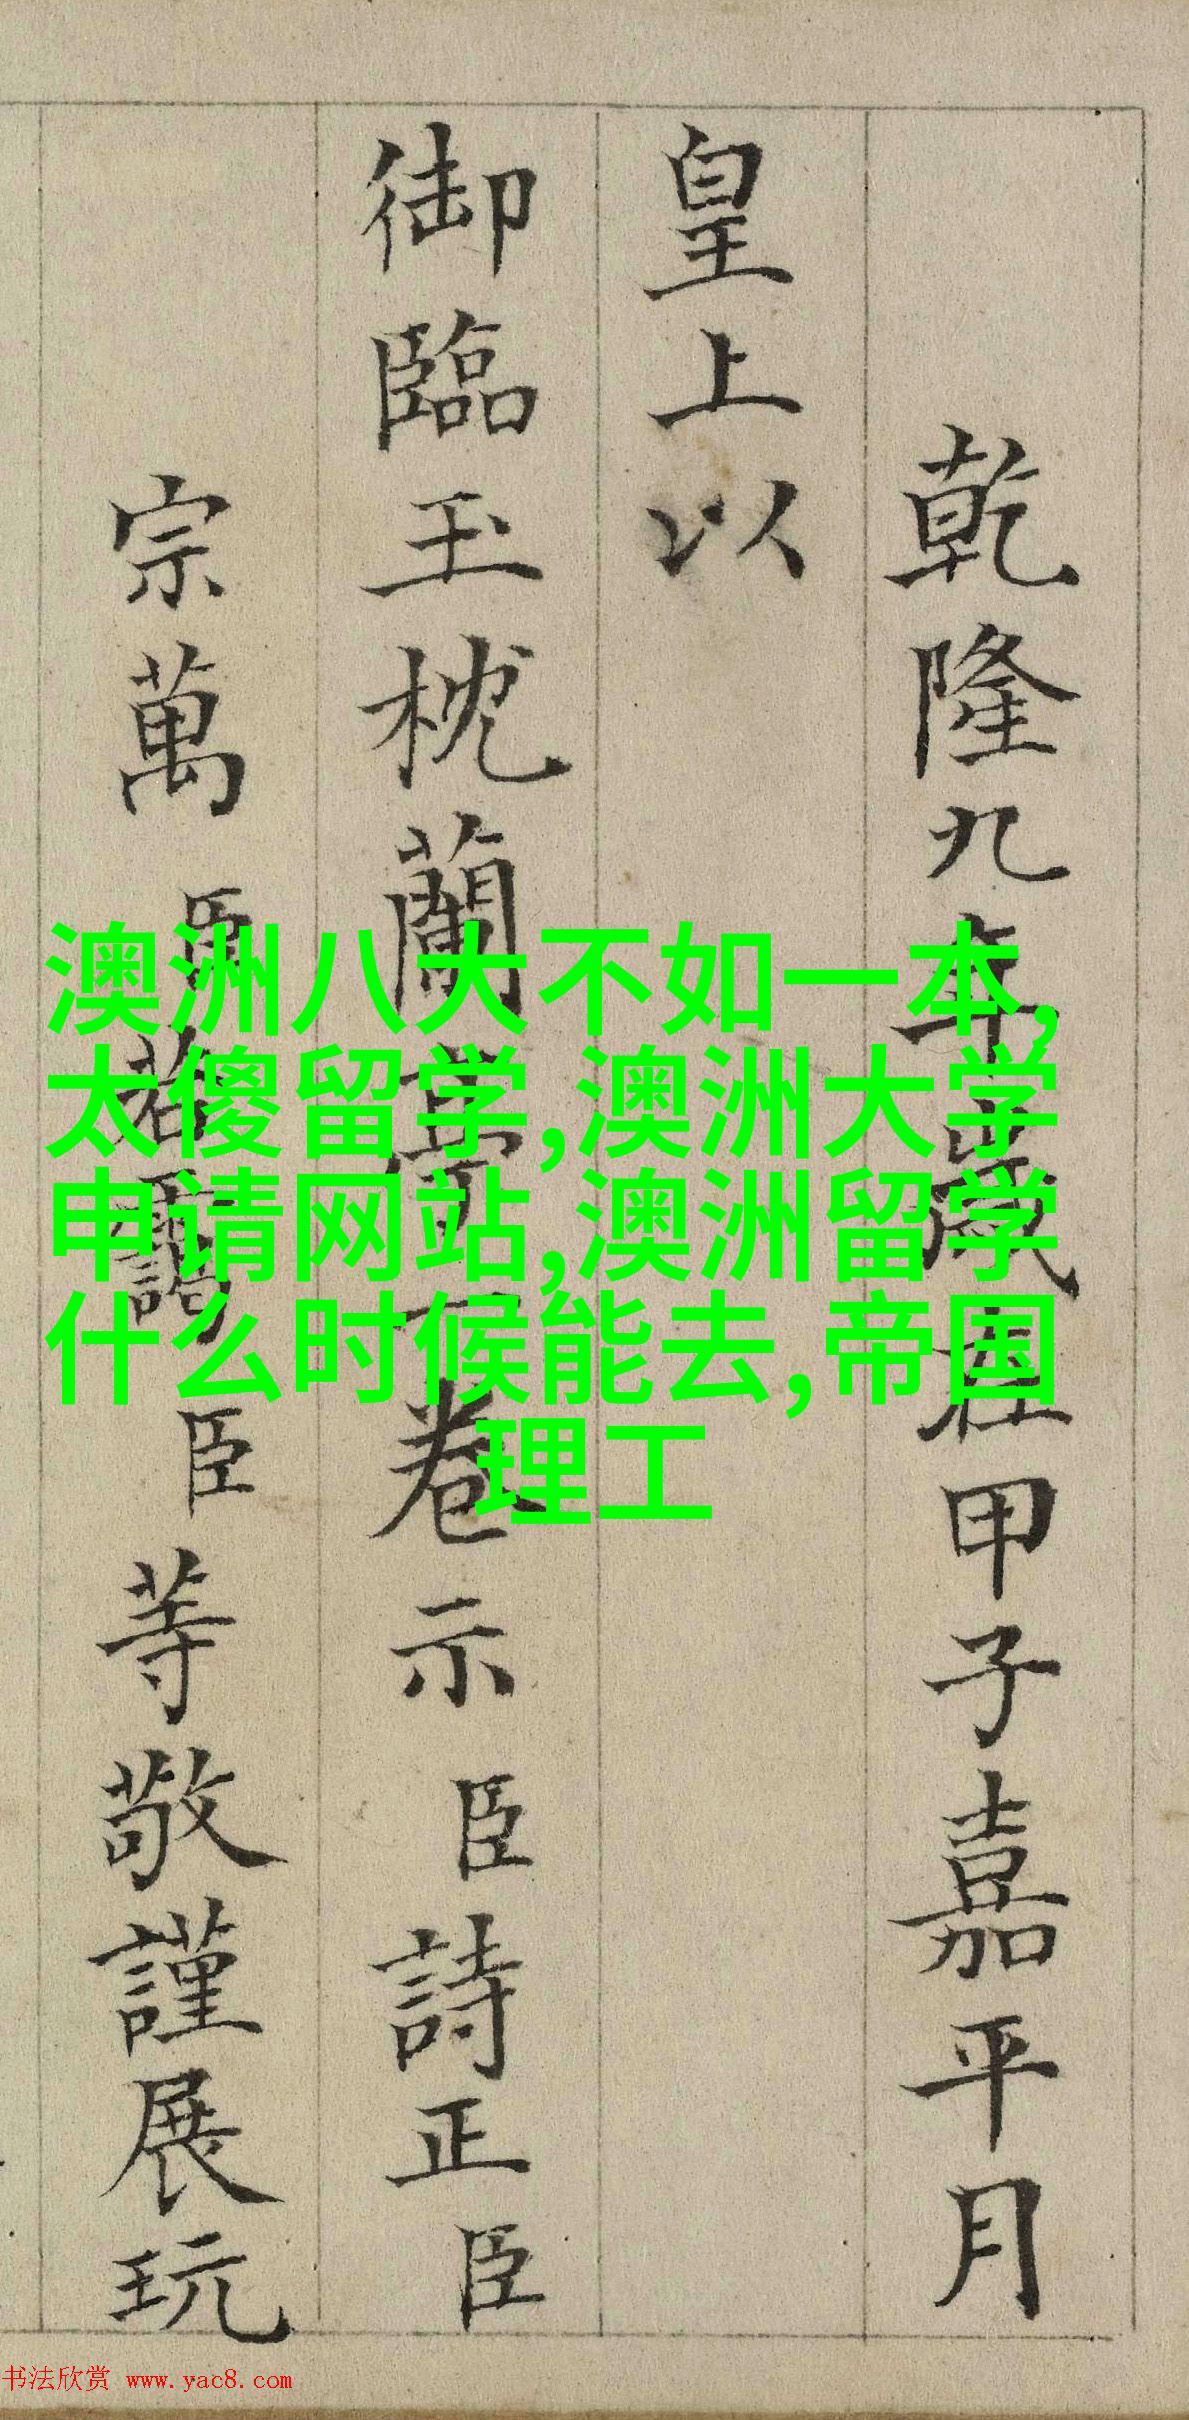 乾隆九年歲在甲子嘉平月
皇上以
御臨玉枕蘭亭一卷示臣詩正臣
宗萬臣若靄臣等敬謹展玩
澳洲八大不如一本,
太傻留学,澳洲大学
申请网站,澳洲留学
什么时候能去,帝国
理工
书法欣赏 www.yac8.com